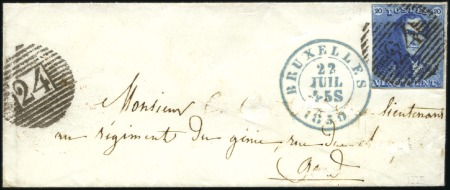 20 POSTES 20
VINGT CENT.
24
BRUXELLES
22
JUIL
4-5S
1850
Monsieur lieutenant
au régiment du génie, rue
Gand